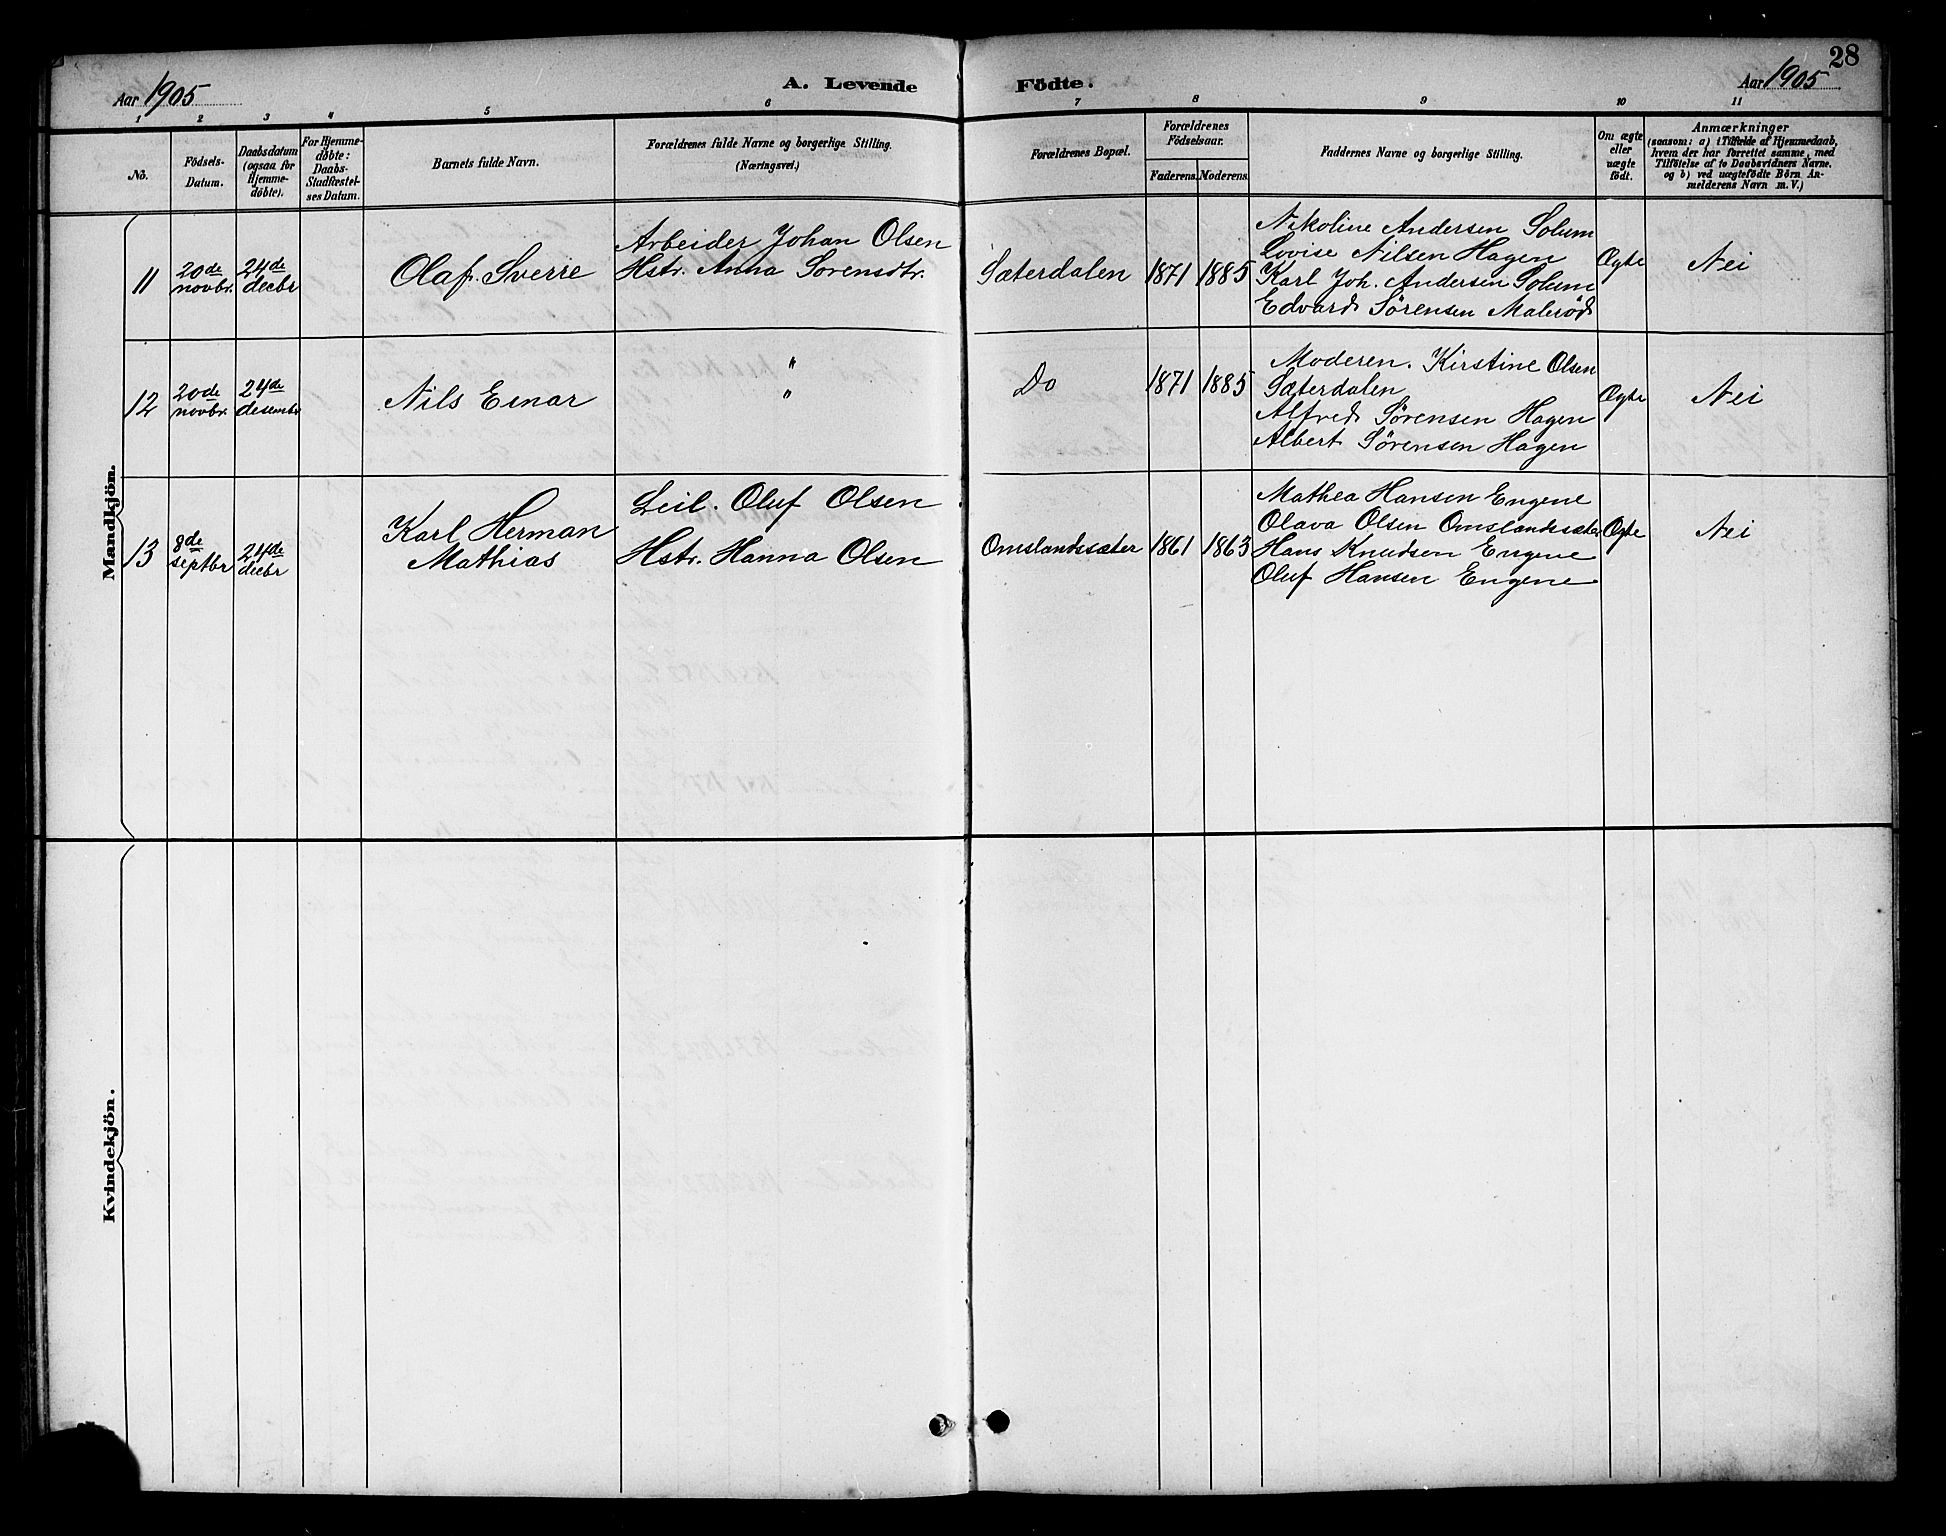 28
Aar 1905
A. Levende Födte.
Aar 1905
1 2 3 4 5 6 7 8 9 10 11
No.
Födsels-
Datum.
Daabsdatum
(ogsaa for
Hjemme-
døbte).
For Hjemme-
døbte:
Daabs-
Stadfæstel-
ses Datum.
Barnets fulde Navn.
Forældrenes fulde Navne og borgerlige Stilling.
(Næringsvei.)
Forældrenes Bopæl.
Forældrenes
Födselsaar.
Faderens. Moderens.
Faddernes Navne og borgerlige Stilling.
Om ægte
eller
uægte
født.
Anmærkninger
(saasom: a) i Tilfælde af Hjemmedaab,
hvem der har forrettet samme, med
Tilføielse af to Daabsvidners Navne.
og b) ved uægtefødte Børn An-
melderens Navn m. V.)
Mandkjön.
11
20de
novbr.
24de
decbr
Olaf Sverre
Arbeider Johan Olsen
Hstr. Anna Sørensdtr.
Sæterdalen
1871
1885
Nikoline Andersen Solum
Lovise Nilsen Hagen
Karl Joh. Andersen Solum
Edvard Sørensen Malerød
Ægte
Nei
12
20de
novbr.
24de
desembr
Nils Einar
"
"
Do
1871
1885
Moderen. Kirstine Olsen
Sæterdalen
Alfred Sørensen Hagen
Albert Sørensen Hagen
Ægte
Nei
13
8de
septbr
24de
decbr
Karl Herman
Mathias
Leil. Oluf Olsen
Hstr. Hanna Olsen
Omslandssæter
1861
1863
Mathea Hansen Engene
Olava Olsen Omslandssæter
Hans Knudsen Engene
Oluf Hansen Engene
Ægte
Nei
Kvindekjön.